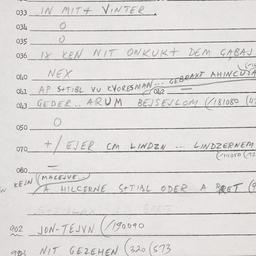 033 IN MITT VINTER.
034 0
035 0
036 IX KEN NIT ONKUKT DEM GABAJ
040 NEX
041 AP S+TIBL VU KVORESMAN... GEBRAXT AHINCU
043 GEDER.. ARUM BEJSEJLOM (/181080
0
050
070 +/ EJER CM LINDZN ... LINDZERNEM
080 —
KEJN (MACEJVE)
A HILCERNE S+TIBL ODER A BRET
902 JON-TEJVN (/190090
NIT GEZEHEN (320 (573